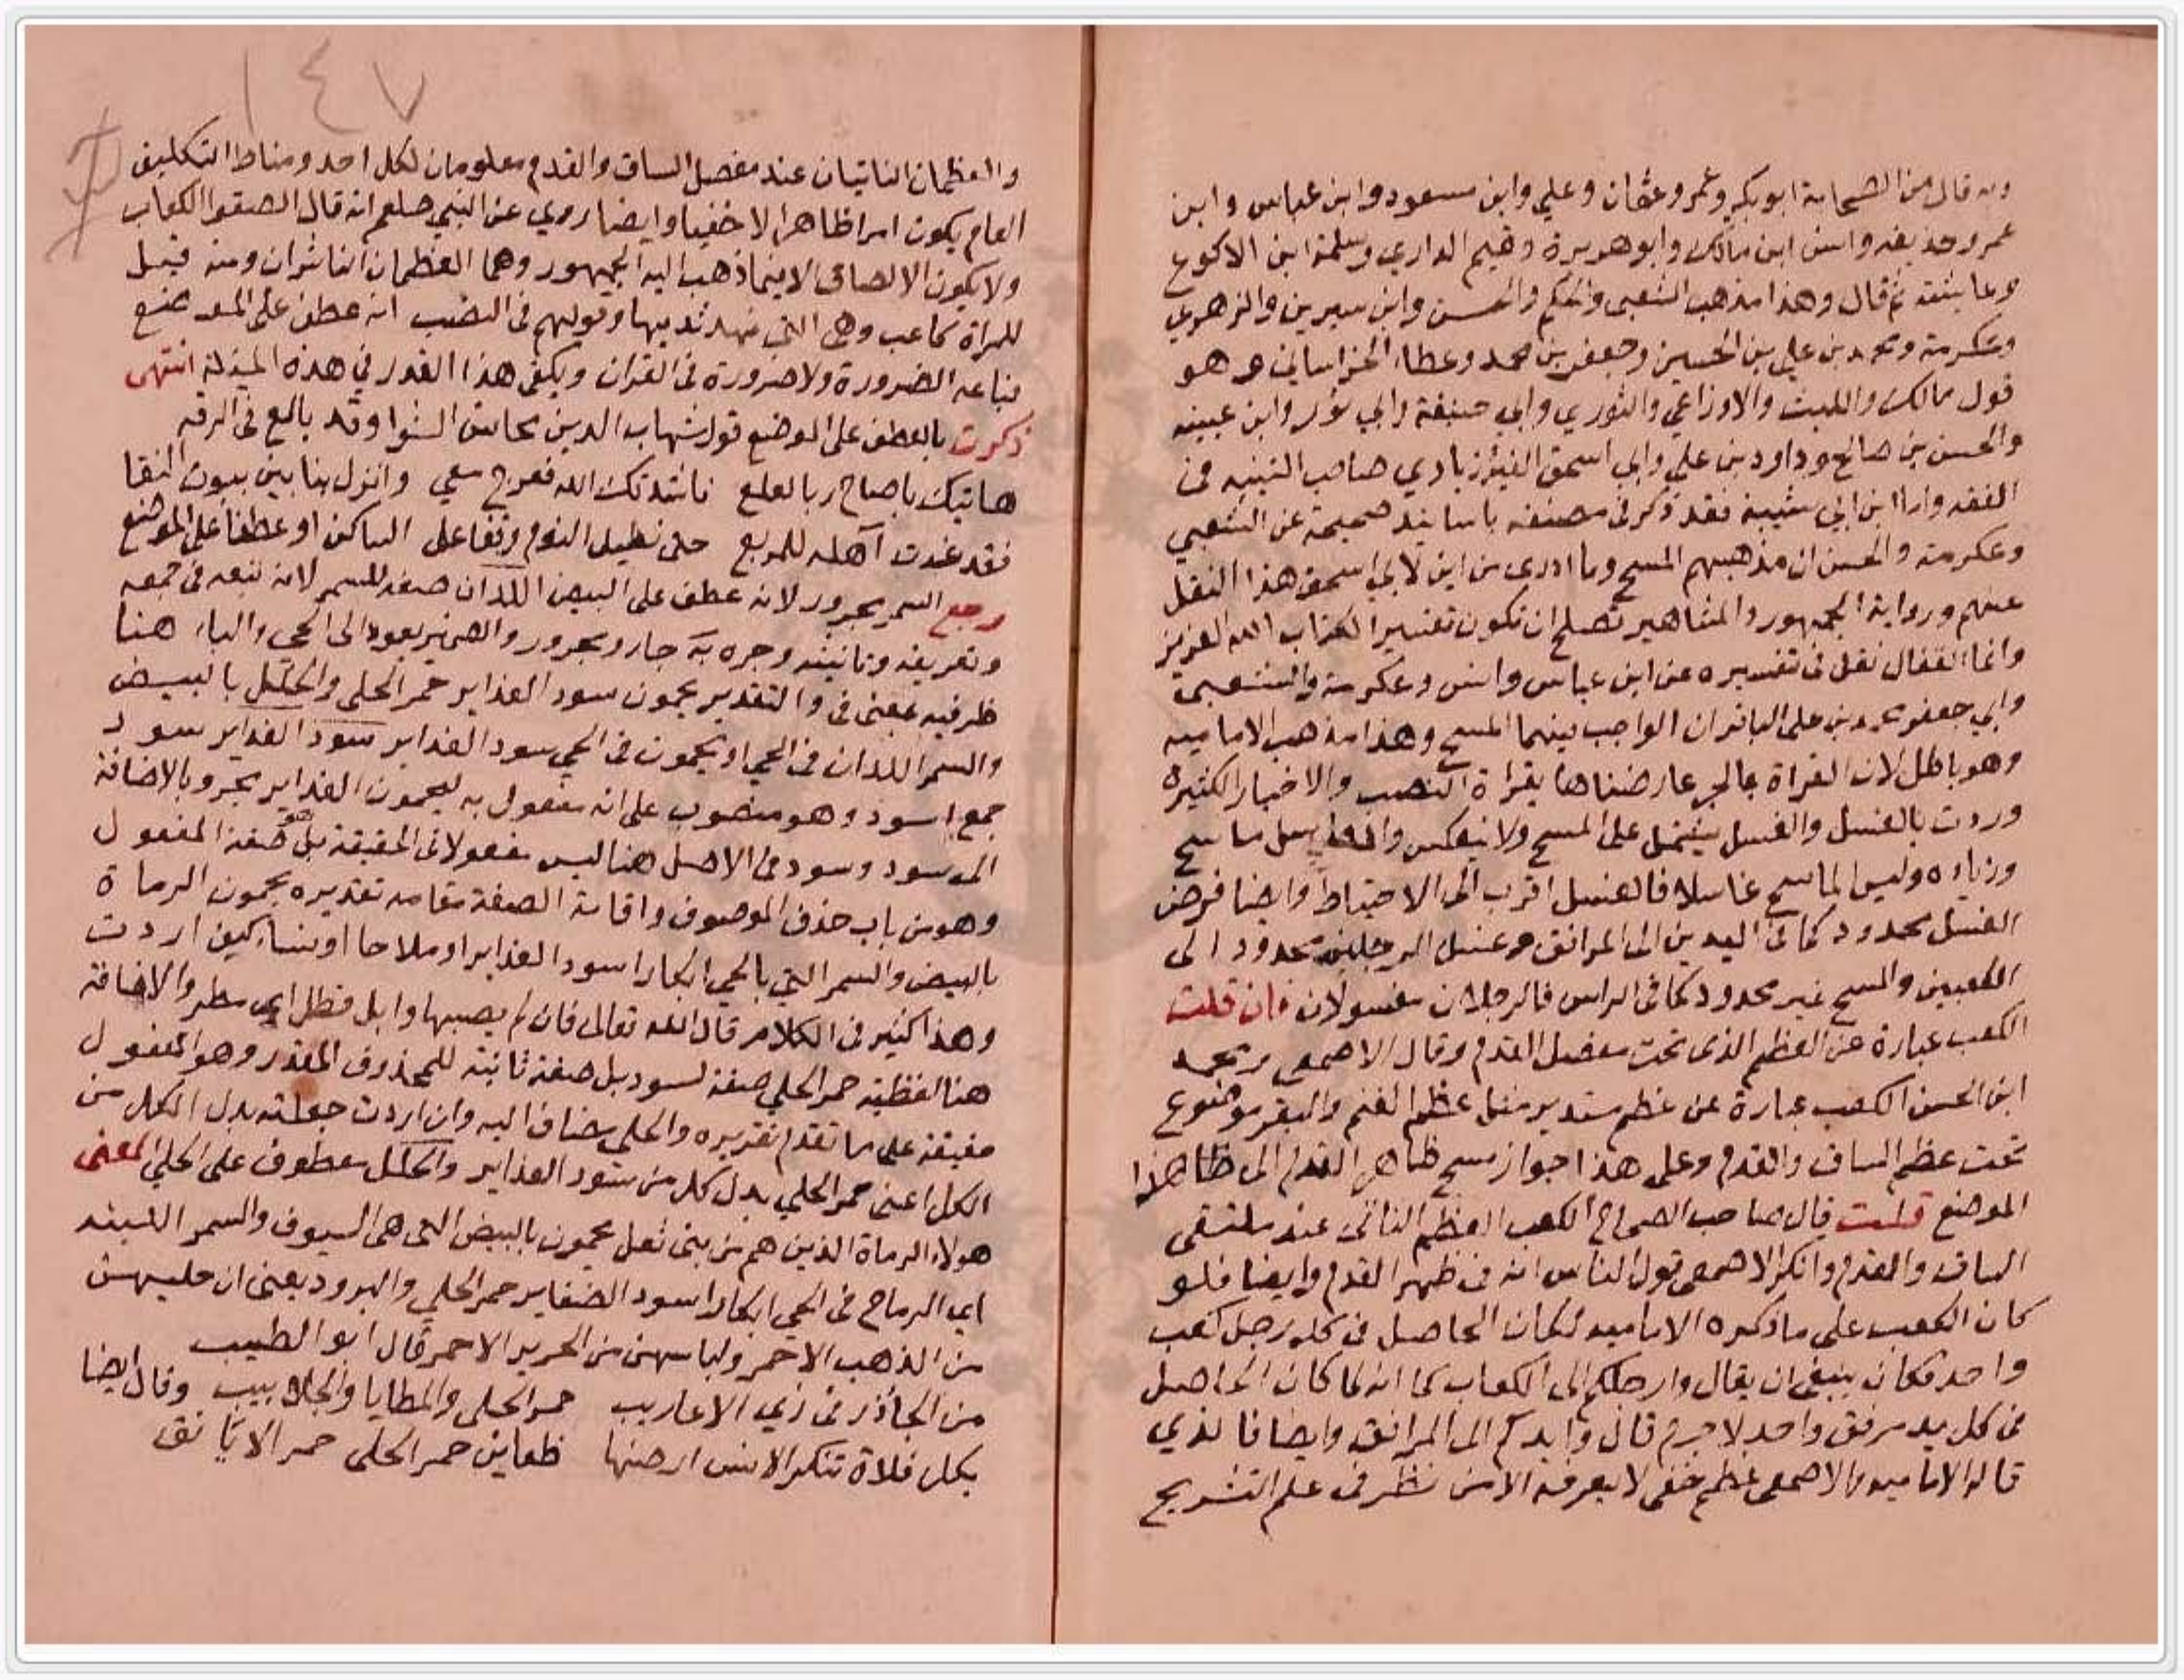 وبه قال من الصحابة ابو بكر وعمر وعثمان وعلي وابن مسعود وابن عباس وابن
عمر وحذيفه وانس ابن مالك وابو هريرة وتميم الداري وسلمة ابن الاكوع
وعايشة ثم قال وهذا مذهب الشعبى والحكم والحسن وابن سيرين والزهري
وعكرمة ومحمد بن علي بن الحسين وجعفر بن محمد وعطاء الخراساني و هو
قول مالك والليث والاوزاعي والثوري وابي حنيفة وابي ثور وابن عيينه
والحسن بن صالح وداود بن علي وابي اسحق الفيرزبادي صاحب التنبيه فى
الفقه واما ابن ابي شيبة فقد ذكر فى مصنفه باسانيد صحيحة عن الشعبي
وعكرمة والحسن ان مذهبهم المسح وما ادرى من اين لابي اسحق هذا النقل
عنهم ورواية الجمهور والمشاهير تصلح ان تكون تفسيرا لكتاب الله العزيز
وانما القفال نقل فى تفسيره عن ابن عباس وانس وعكرمة والشعبى
وابي جعفر محمد بن على الباقر ان الواجب بينهما المسح وهذا مذهب الاماميه
وهو باطل لان القراة بالجر عارضناها بقراة النصب والاخبار الكثيره
وردت بالغسل والغسل يشتمل على المسح ولا ينعكس والغاسل ماسح
وزياده وليس الماسح غاسلا فالغسل اقرب الى الاحتياط وايضا فرض
الغسل محدود كما فى اليدين الى المرافق وغسل الرجلين محدود الى
الكعبين والمسح غير محدود كما فى الراس فالرجلان مغسولان فان قلت
الكعب عبارة عن العظم الذى تحت مفصل القدم وقال الاصمعى ومحمد
ابن الحسن الكعب عبارة عن عظم مستدير مثل عظم الغنم والبقر موضوع
تحت عظم الساق والقدم وعلى هذا جواز مسح ظاهر القدم الى هذا
الموضع قلت قال صاحب الصحاح الكعب العظم الناتى عند ملتقى
الساق والقدم وانكر الاصمعى قول الناس انه فى ظهر القدم وايضا فلو
كان الكعب على ما ذكره الاماميه لكان الحاصل فى كل رجل كعب
واحد فكان ينبغى ان يقال وارجلكم الى الكعاب كما انه لما كان الحاصل
فى كل يد مرفق واحد لا جرم قال وايديكم الى المرافق وايضا فالذي
قاله الاماميه والاصمعى عظم خفى لا يعرفه الا من نظر فى علم التشريح
١٤٧
والعظمان الناتيان عند مفصل الساق والقدم معلومان لكل احد ومناط التكليف
العام يكون امرا ظاهرا لا خفيا وايضا روي عن النبي صلعم انه قال الصقوا الكعاب
ولا يكون الالصاق الا فيما ذهب اليه الجمهور وهما العظمان الناشزان ومنه قيل
للمراة كاعب وهى التى نهد ثديها وقولهم فى النصب انه عطف على الموضع
بناعه الضرورة ولا ضرورة فى القران ويكفى هذا القدر في هذه المسئلة انتهى
ذكرت بالعطف على الموضع قول شهاب الدين محاسن الشوا وقد بالغ فى الرقه
هاتيك يا صاح ربا لعلع ناشدتك الله فعرج معي وانزل بنا بين بيوت النقا
فقد غدت آهلة للمربع حتى نطيل النوم وقفا على الساكن او عطفا على الموضع
رجع السمر مجرور لانه عطف على البيض اللدان صفه للسمر لانه تبعه فى جمعه
وتعريفه وتانيثه وجره به جار ومجرور والضمير يعود الى الحى والباء هنا
ظرفيه بمعنى فى والتقدير يحمون سود الغداير حمر الحلى والحلل بالبيض
والسمر اللدان فى الحى او يحمون فى الحي سود الغداير سود الغداير سود
جمع اسود وهو منصوب على انه مفعول به ليحمون الغداير مجرور بالاضافة
الى سود وسود فى الاصل هنا ليس مفعولا فى الحقيقة بل هو صفة المفعول
وهو من باب حذف الموصوف واقامة الصفة مقامه تقديره يحمون الرماة
بالبيض والسمر التى بالحي ابكارا سود الغداير او ملاحا او نساء كيف اردت
وهذا كثير فى الكلام قال الله تعالى فان لم يصبها وابل فطل اي مطر والاضافة
هنا لفظية حمر الحلي صفة لسود بل صفة ثانية للمحذوف المقدر وهو المفعول
حقيقة على ما تقدم تقريره والحلى مضاف اليه وان اردت جعلته بدل الكل من
الكل اعنى حمر الحلي بدل كل من سود الغداير والحلل معطوف على الحلي المعنى
هولاء الرماة الذين هم من بنى ثعل يحمون بالبيض التى هى السيوف والسمر اللينه
اي الرماح فى الحي ابكارا سود الضفاير حمر الحلي والبرود يعنى ان حليهن
من الذهب الاحمر ولباسهن من الحرير الاحمر قال ابو الطيب
من الجآذر فى زي الاعاريب حمر الحلى والمطايا والجلابيب وقال ايضا
بكل فلاة تنكر الانس ارضها ظعاين حمر الحلى حمر الايانق